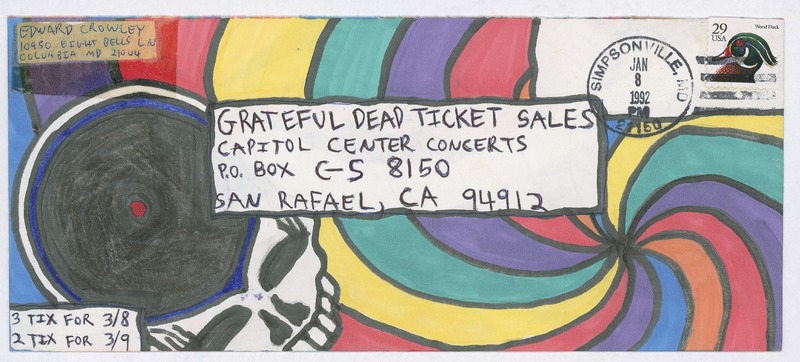 EDWARD CROWLEY
10950 EIGHT BELLS LN
COLUMBIA MD 21044
29
USA
Wood Duck
SIMPSONVILLE, MD
JAN
8
1992
PM
21150
GRATEFUL DEAD TICKET SALES
CAPITOL CENTER CONCERTS
P.O. BOX CS 8150
SAN RAFAEL, CA 94912
3 TIX FOR 3/8
2 TIX FOR 3/9